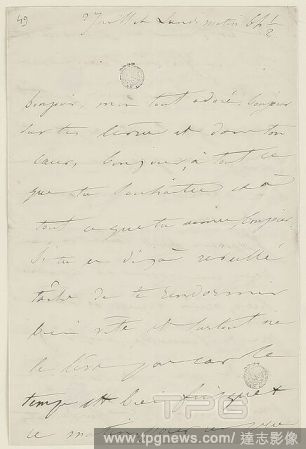 49
27 Juillet Lundi matin 6h ½
bonjour, mon tout adoré, bonjour
sur tes lèvres et dans ton
cœur, bonjour, à tout ce
que tu souhaites et à
tout ce que tu aimes, bonjour.
Si tu es déjà réveillé
tâche de te rendormir
bien vite et surtout ne
te lève pas car le
temps est bien
ce matin
TPG
www.tpgnews.com / 達志影像